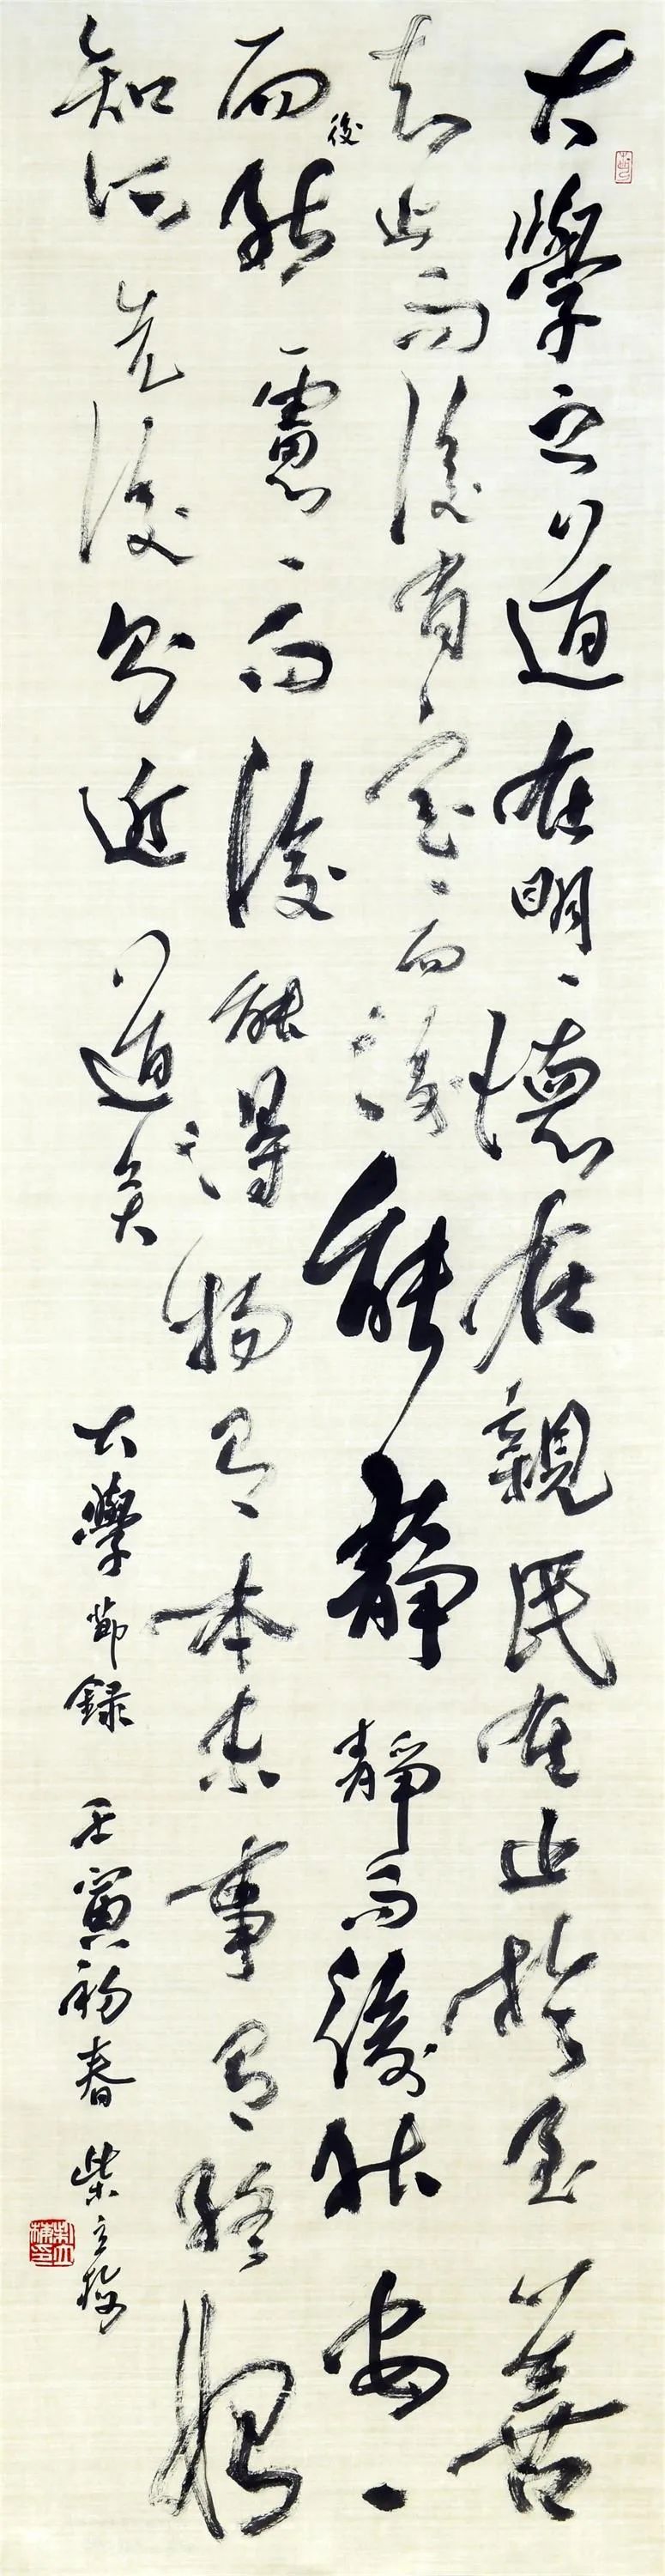 大學之道在明々德在親民在止於至善
知止而後有定々而後能靜靜而後能安々
而後能慮々而後能得物有本末事有終始
知所先後則近道矣
大學節錄 壬寅初春 柴立